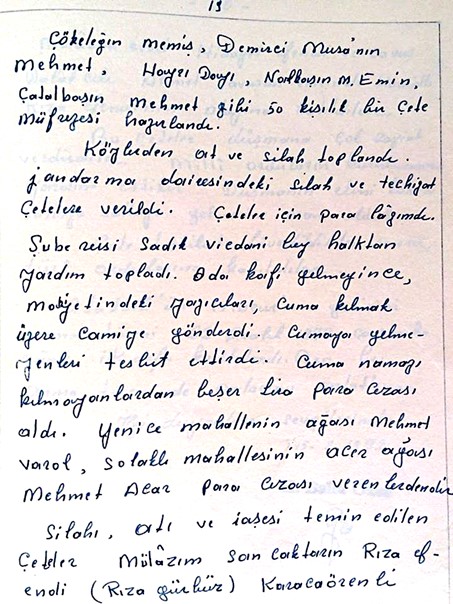 19
Çökeleğin memiş, Demirci Musa'nın
Mehmet, Hayrı Dayı, Nalbaşın M. Emin,
Çatalbaşın Mehmet gibi 50 kişilik bir Çete
Müfrezesi hazırlandı.
Köylüden at ve silah toplandı.
jandarma dairesindeki silah ve techizat
Çetelere verildi. Çeteler için para lâzımdı.
Şube reisi Sadık vicdani bey halktan
yardım topladı. O da kafi gelmeyince,
maiyetindeki yazıcıları, Cuma kılmak
üzere Camiye gönderdi. Cumaya gelme-
yenleri tesbit ettirdi. Cuma namazı
kılmayanlardan beşer lira para cezası
aldı. Yenice mahallenin ağası Mehmet
varol, Solaklı mahallesinin acer ağası
Mehmet Acar para cezası verenlerdendir
Silahı, atı ve iaşesi temin edilen
Çeteler Mülâzım sancaktarın Rıza ef-
endi (Rıza gürbüz) Karacaörenli